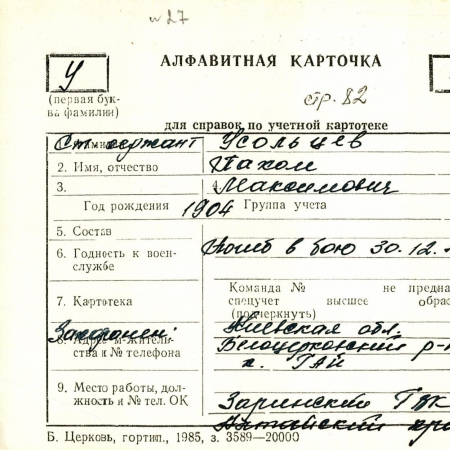 и 27
АЛФАВИТНАЯ КАРТОЧКА
У
(первая бук-
ва фамилии)
стр. 82
для справок по учетной картотеке
Ст сержант Усольцев
2. Имя, отчество Пахом
3. 4. Максимович
Год рождения 1904 Группа учета
5. Состав
6. Годность к воен-
службе
Погиб в бою 30.12.
Команда № не предна
7. Картотека спецучет высшее образ
(подчеркнуть)
Захоронен: Киевская обл.
8. Адрес м-жительст-
ва и № телефона
Белоцерковский р-н
х. ГАЙ
9. Место работы, дол-
жность и № тел. ОК
Заринский ГВК
Алтайский кра
Б. Церковь, гортип., 1985, з. 3589—20000